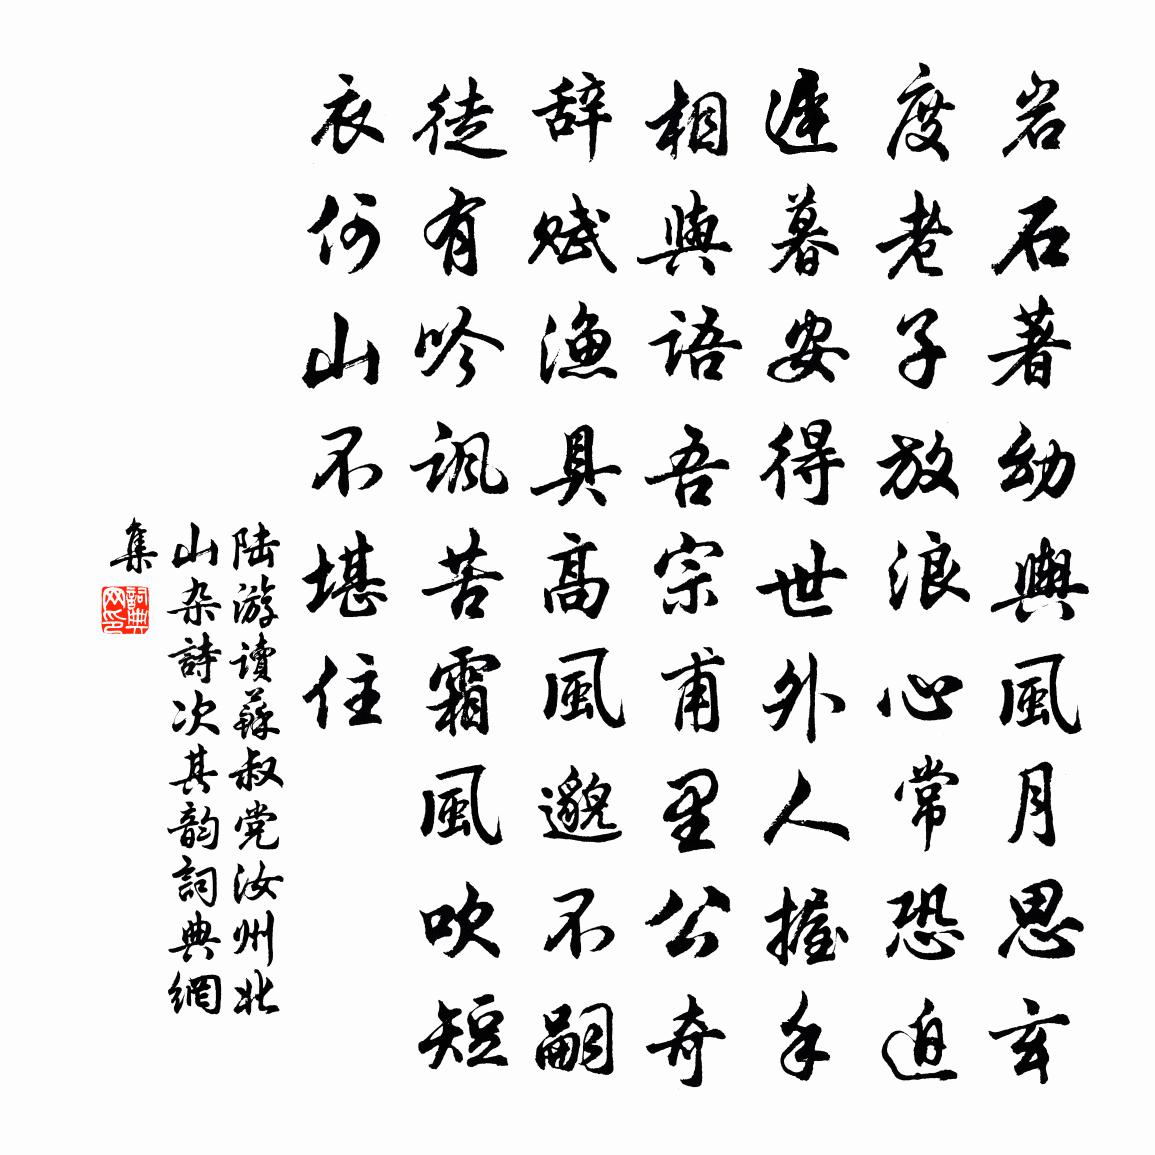 岩石著幼輿風月思玄
度老子放浪心常恐迫
遲暮安得世外人握手
相與語吾宗甫里公奇
辞赋漁具高風邈不嗣
徒有吟諷苦霜風吹短
衣何山不堪住
陆游读蘇叔党汝州北
山杂詩次其韵詞典網
集
詞典
网印